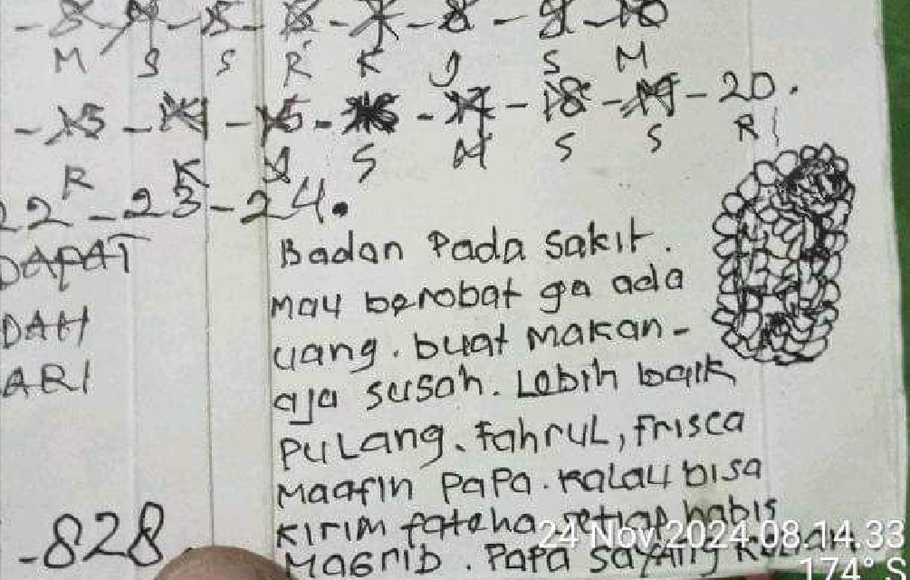 M S S R K J S M
-20.
R K J S M S S R
22-23-24.
DAPAT
DAH
ARI
Badan Pada sakit.
Mau berobat ga ada
uang. buat Makan-
aja susah. Lebih baik
PuLang. Fahrul, Frisca
Maafin PaPa. Kalau bisa
Kirim fateha setiap habis
Magrib. PaPa sayang
-828
24 Nov 2024 08.14.33
174° S